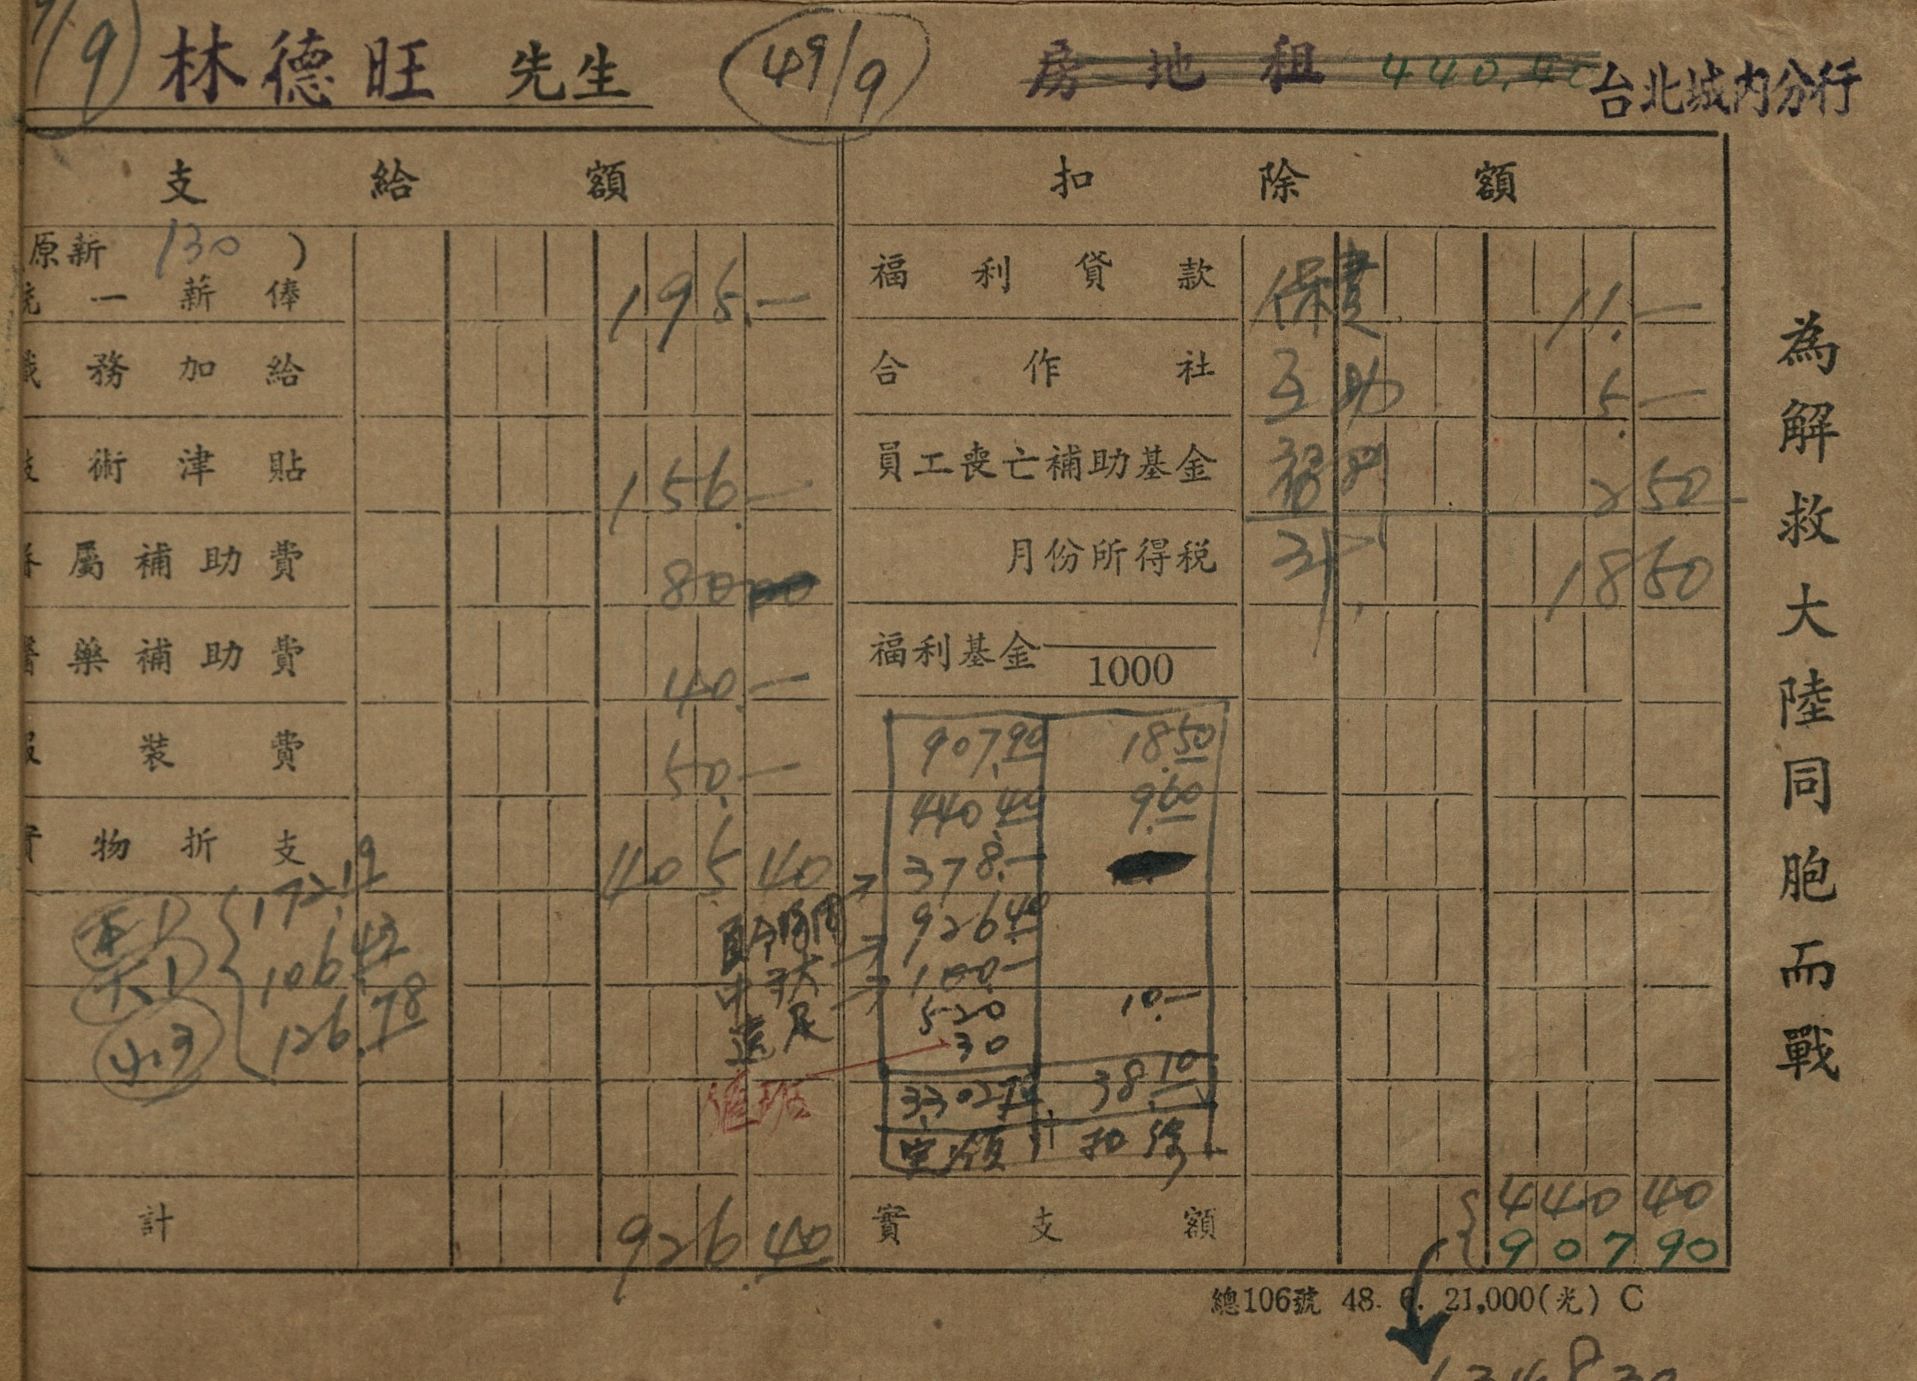 /9 林德旺 先生 49/9 房地租 440.40 台北城內分行
支給額 扣除額
原新 130 )
一薪俸 195.— 福利貸款 保費 11.—
務加給 合作社 互助 5.—
術津貼 156.— 員工喪亡補助基金 250
屬補助費 80 月份所得稅 計 1850
藥補助費 40.— 福利基金 1000
裝費 50.— 907.90 18.50
440.40 9.60
物折支 405.40 378.—
172.19 926.40
大1 106.43 100.—
小3 126.78 遠足 520 10.—
30
值班
3,302.70 38.10
實領 計 扣除
440 40
計 926.40 實支額 907 90
總106號 48. 6. 21,000(光) C
為解救大陸同胞而戰